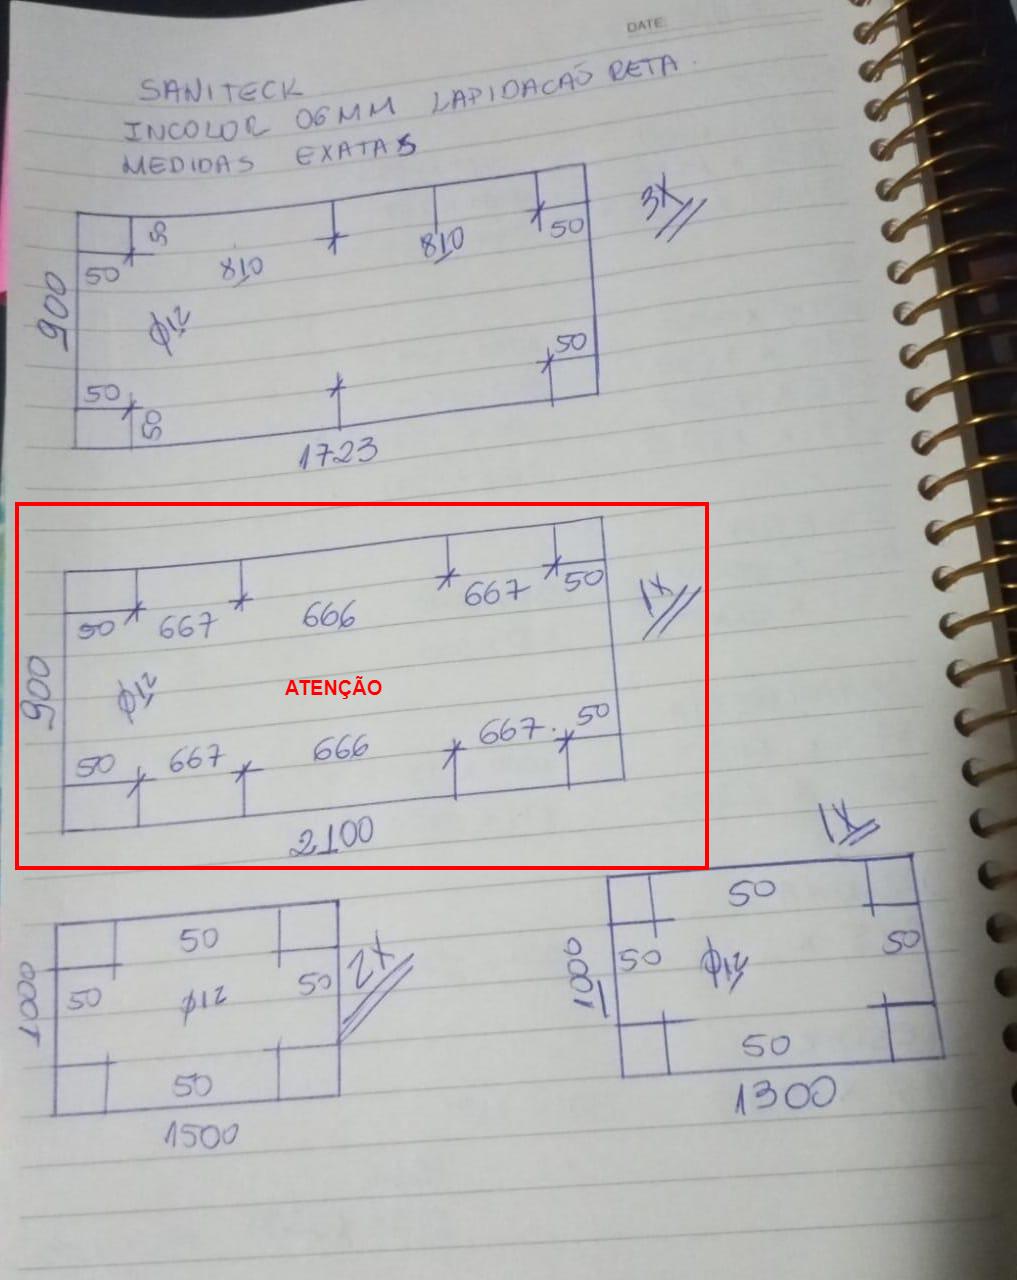 DATE:
SANITECK
INCOLOR 06MM LAPIDACAÕ RETA.
MEDIDAS EXATAS
3X
50
50
810
810
50
900
φ12
50
50
50
1723
50
667
666
667
50
1X
900
φ12
ATENÇÃO
50
667
666
667.
50
2100
1X
50
50
50
1000
50
50
2X
1000
φ12
φ12
50
50
1500
1300